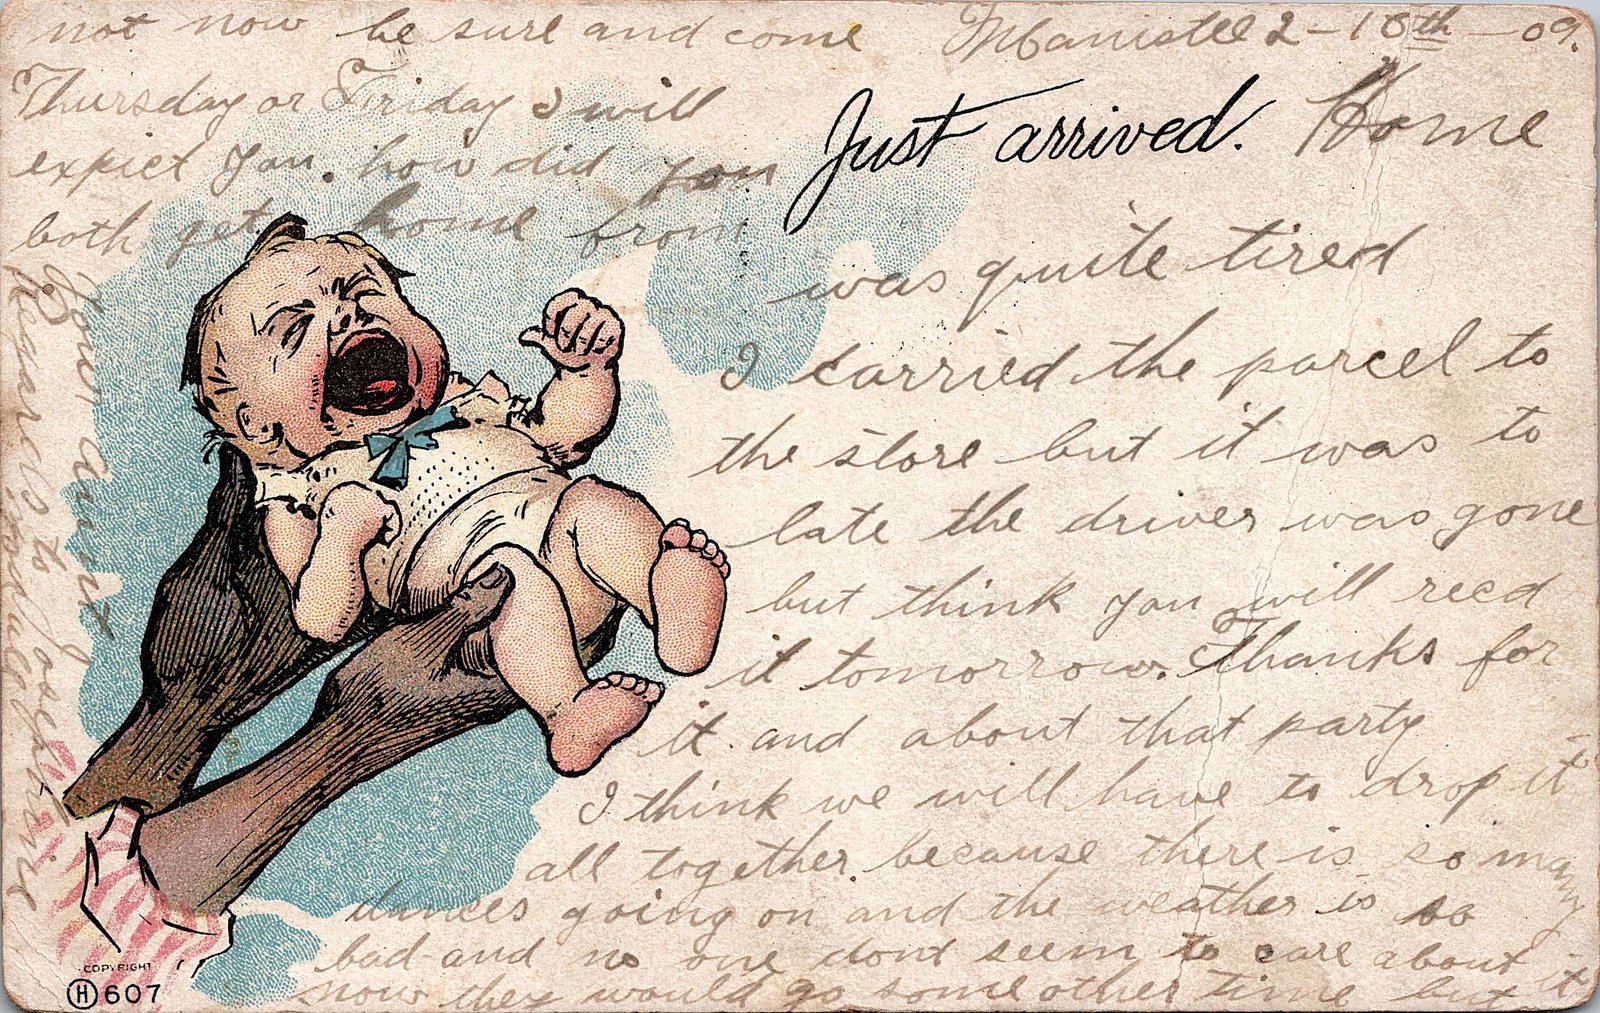 Manistee 2-18th-09.
Just arrived. Home
was quite tired
I carried the parcel to
the store but it was to
late the driver was gone
but think you will recd
it tomorrow. Thanks for
it and about that party
I think we will have to drop it
all together. because there is so many
dances going on and the weather is so
bad and no one dont seem to care about it
now they would go some other time but
not now be sure and come
Thursday or Friday I will
expect you. how did you
both get home from
Regards to Josephine
your Aunt
COPYRIGHT
H 607